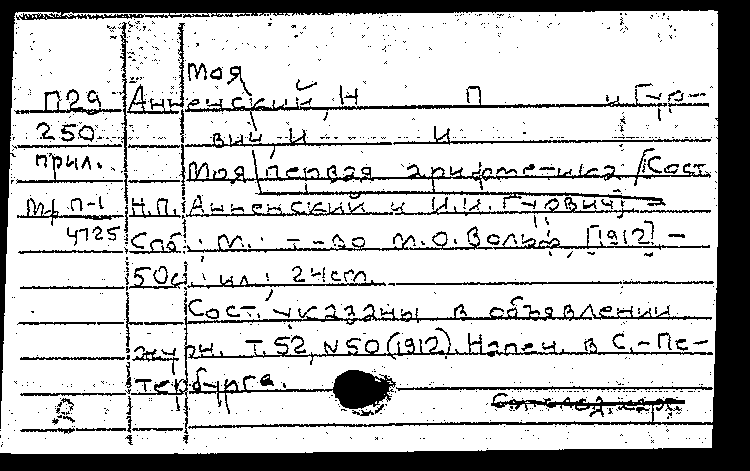 Моя
П29 Анненский, Н П и Гур-
250 вич, И И
прил. Моя первая арифметика /Сост.
Мф П-1 Н.П. Анненский и И.И. Гурвич] –
4725 Спб.: М.: т-во М.О. Вольф, [1912] –
50с.: ил.; 24см.
Сост. указаны в объявлении
журн. Т. 52, N 50 (1912). Напеч. в С.-Пе-
тербурга.
См. след. карт.